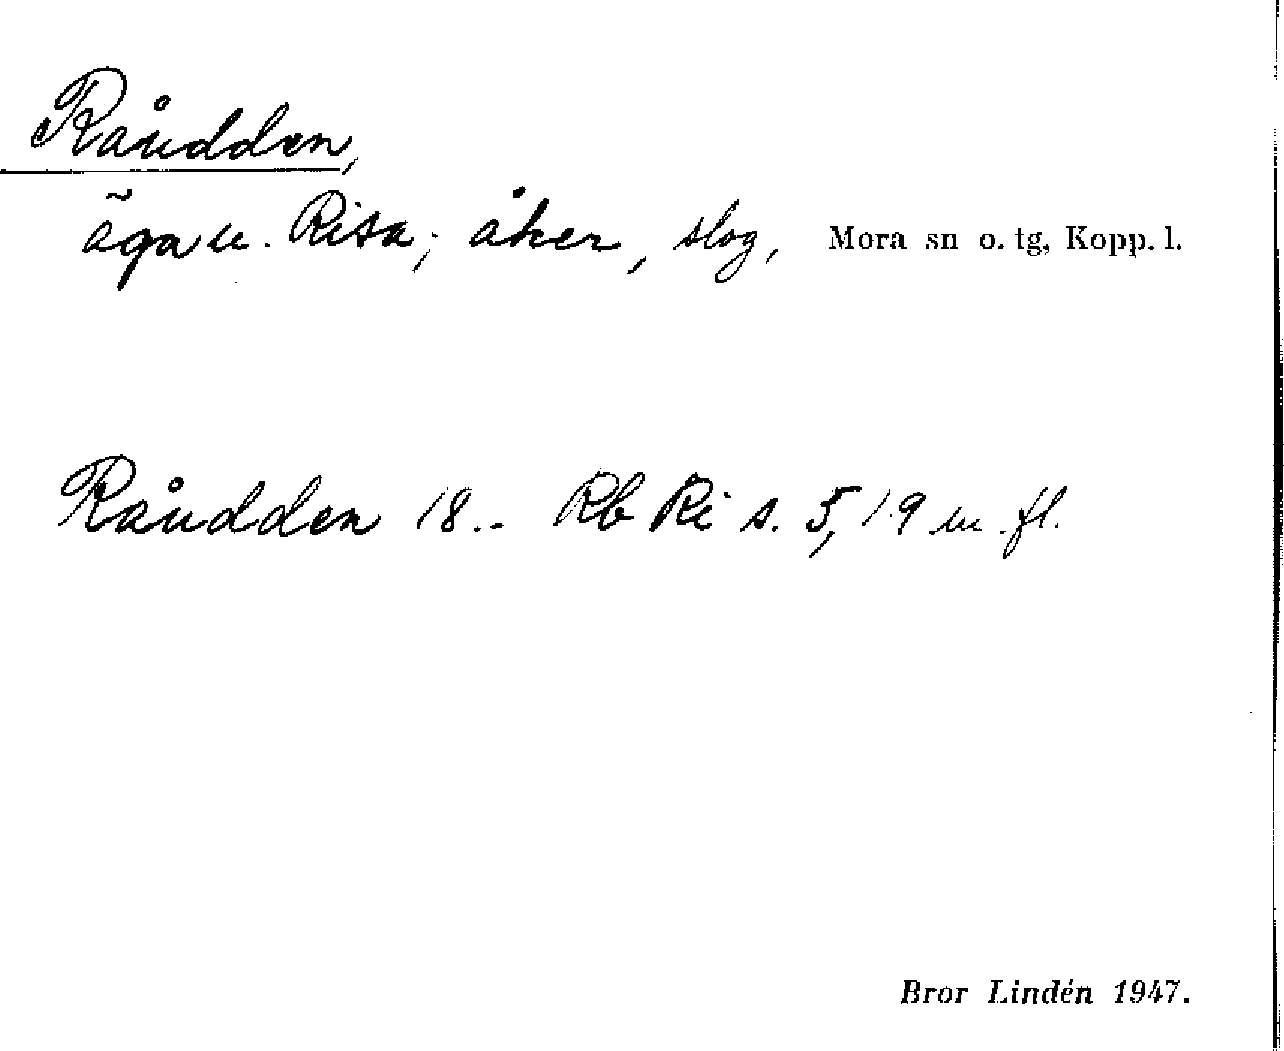 Råudden,
äga u. Risa; åker, slog, Mora sn o. tg, Kopp. l.
Råudden 18.. Rb Ri s. 5, 19 m. fl.
Bror Lindén 1947.